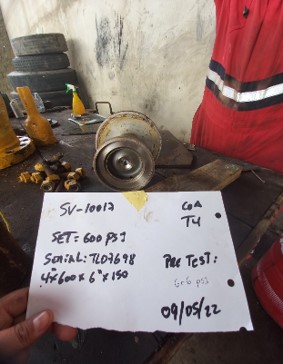 SV-10017
COA
T4
SET: 600 PSI
SERIAL: TL07698
4"x600x6"x150
PRE TEST:
606 PSI
09/05/22